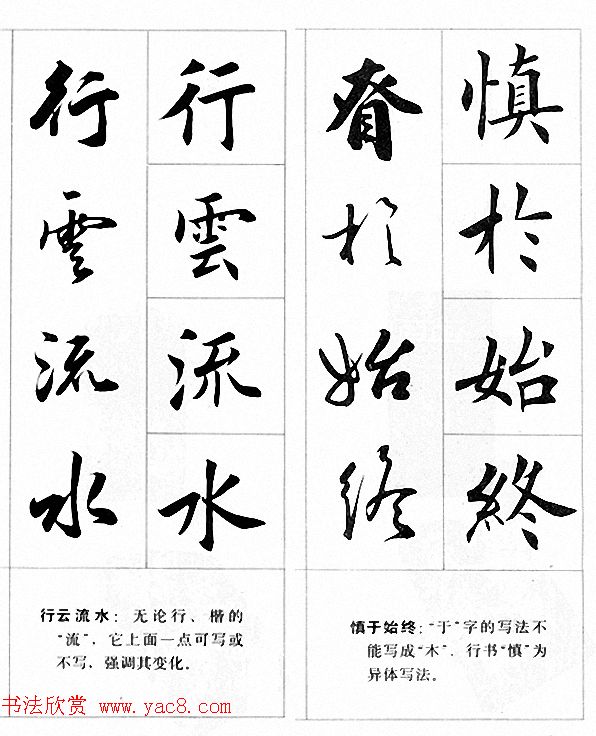 慎於始終
眘於始終
慎于始终：“于”字的写法不
能写成“木”．行书“慎”为
异体写法。
行雲流水
行雲流水
行云流水：无论行、楷的
“流”，它上面一点可写或
不写，强调其变化。
书法欣赏 www.yac8.com